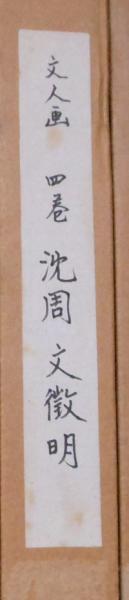 文人画 四巻 沈周 文徴明